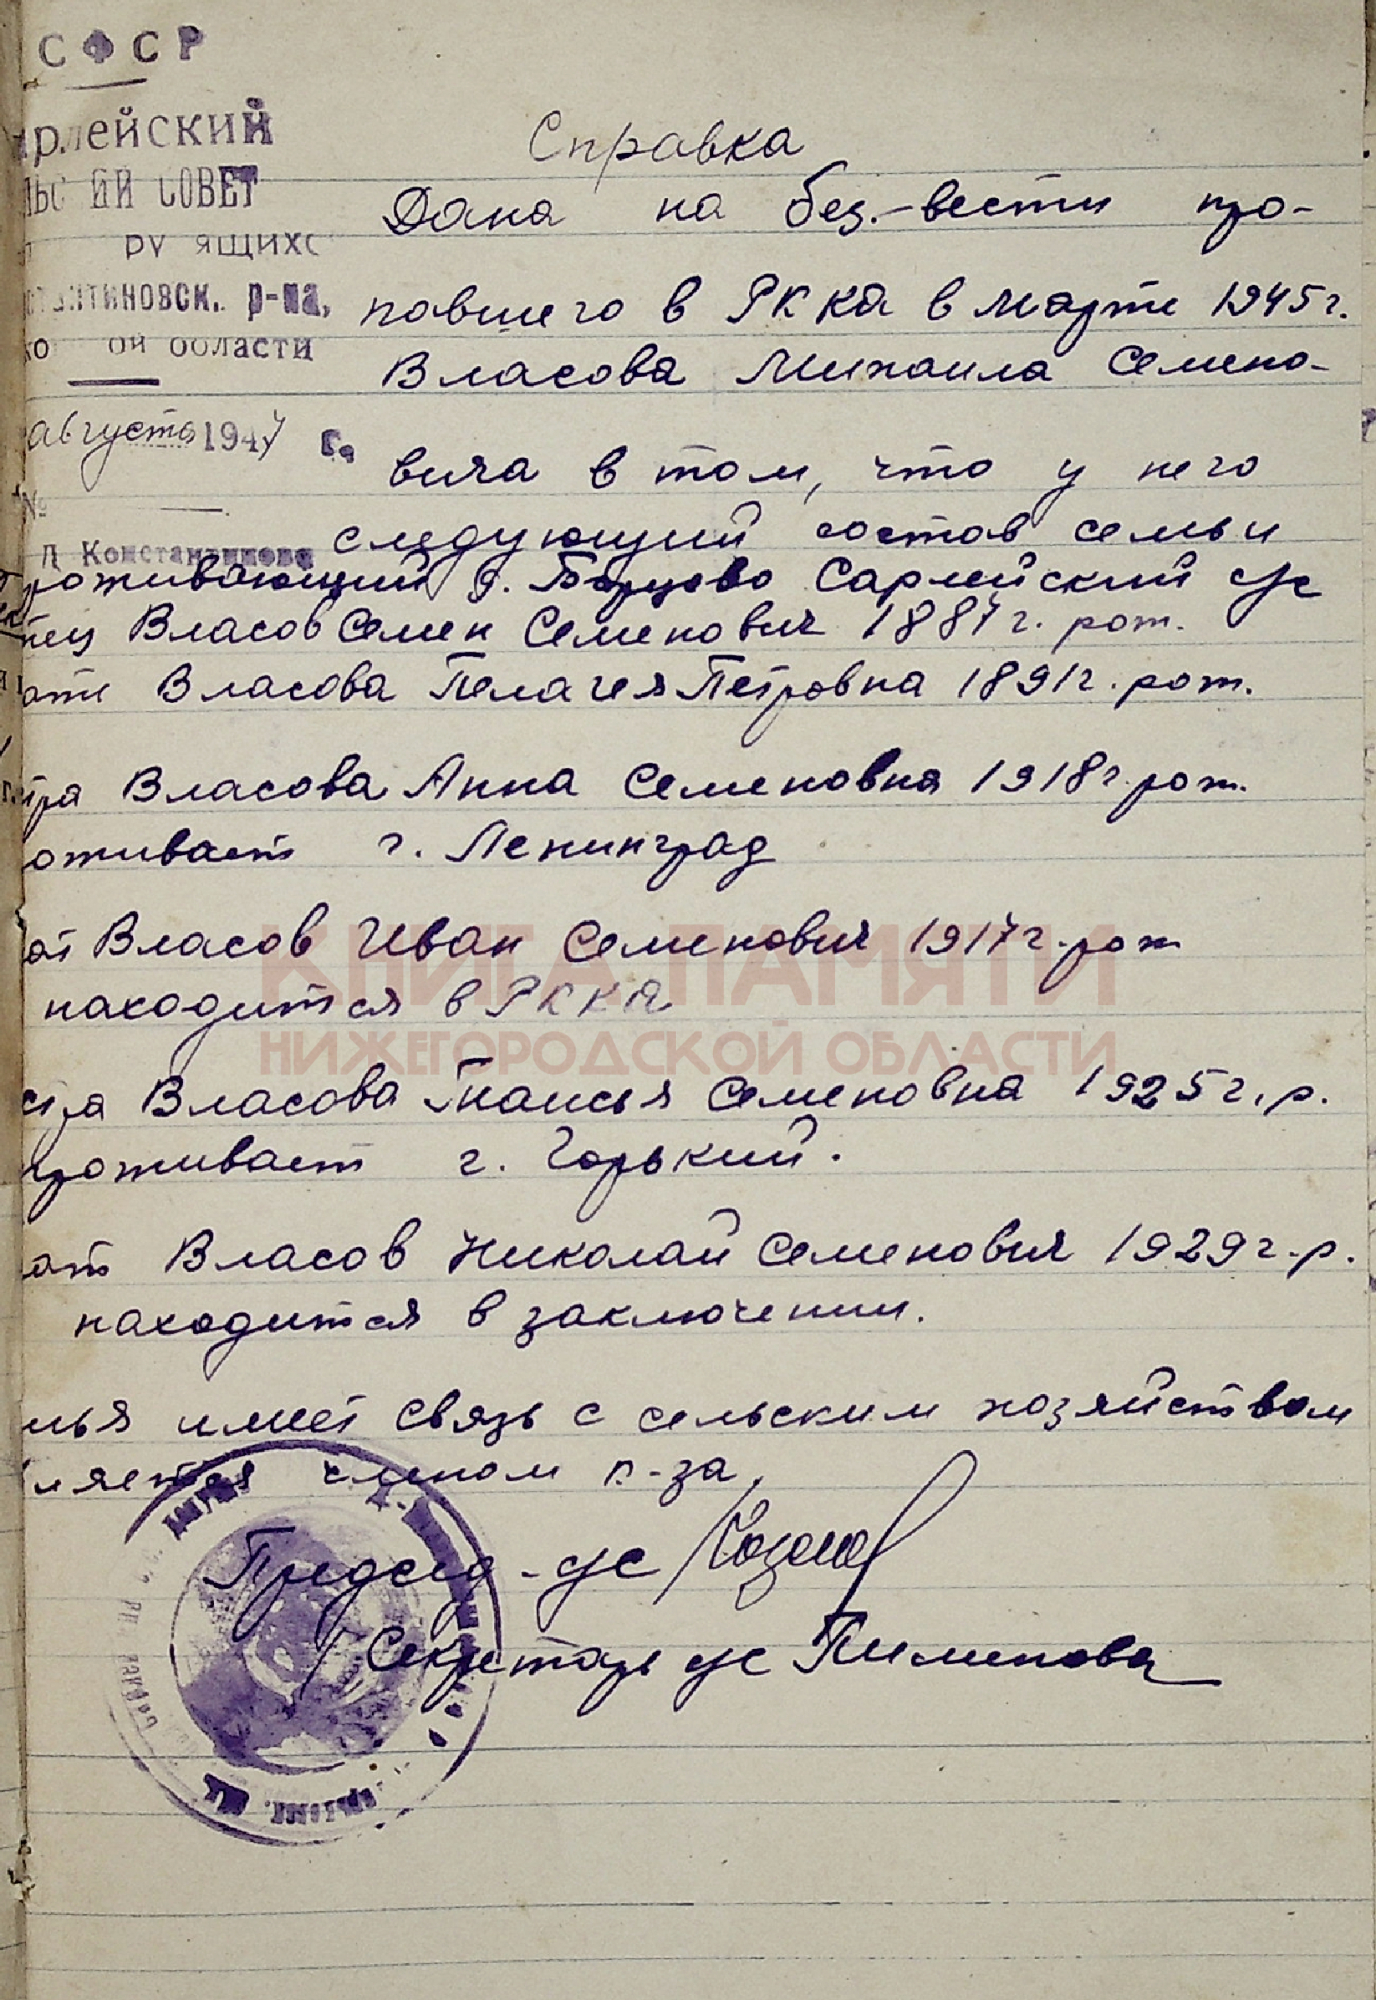 СФСР
рлейский
ЛЬС ИЙ СОВЕТ
РУ ЯЩИХС
тантиновск. р-на,
ко ой области
августа 1947 г.
№
Д Константиново
Справка
Дана на без.-вести про-
павшего в РККА в марте 1945 г.
Власова Михаила Семено-
вича в том, что у него
следующий состав семьи
роживающий д. Борцово Сарлейский с/с
тец Власов Семен Семенович 1887 г. рож.
ать Власова Пелагея Петровна 1891 г. рож.
тра Власова Анна Семеновна 1918 г. рож.
оживает г. Ленинград
ат Власов Иван Семенович 1917 г. рож
находится в РККА
стра Власова Таисья Семеновна 1925 г. р.
проживает г. Горький.
ат Власов Николай Семенович 1929 г. р.
находится в заключении.
мья имеет связь с сельским хозяйством
вляется членом к-за,
Председ. с/с Козлов
Секретарь с/с Пименова
КНИГА ПАМЯТИ
НИЖЕГОРОДСКОЙ ОБЛАСТИ